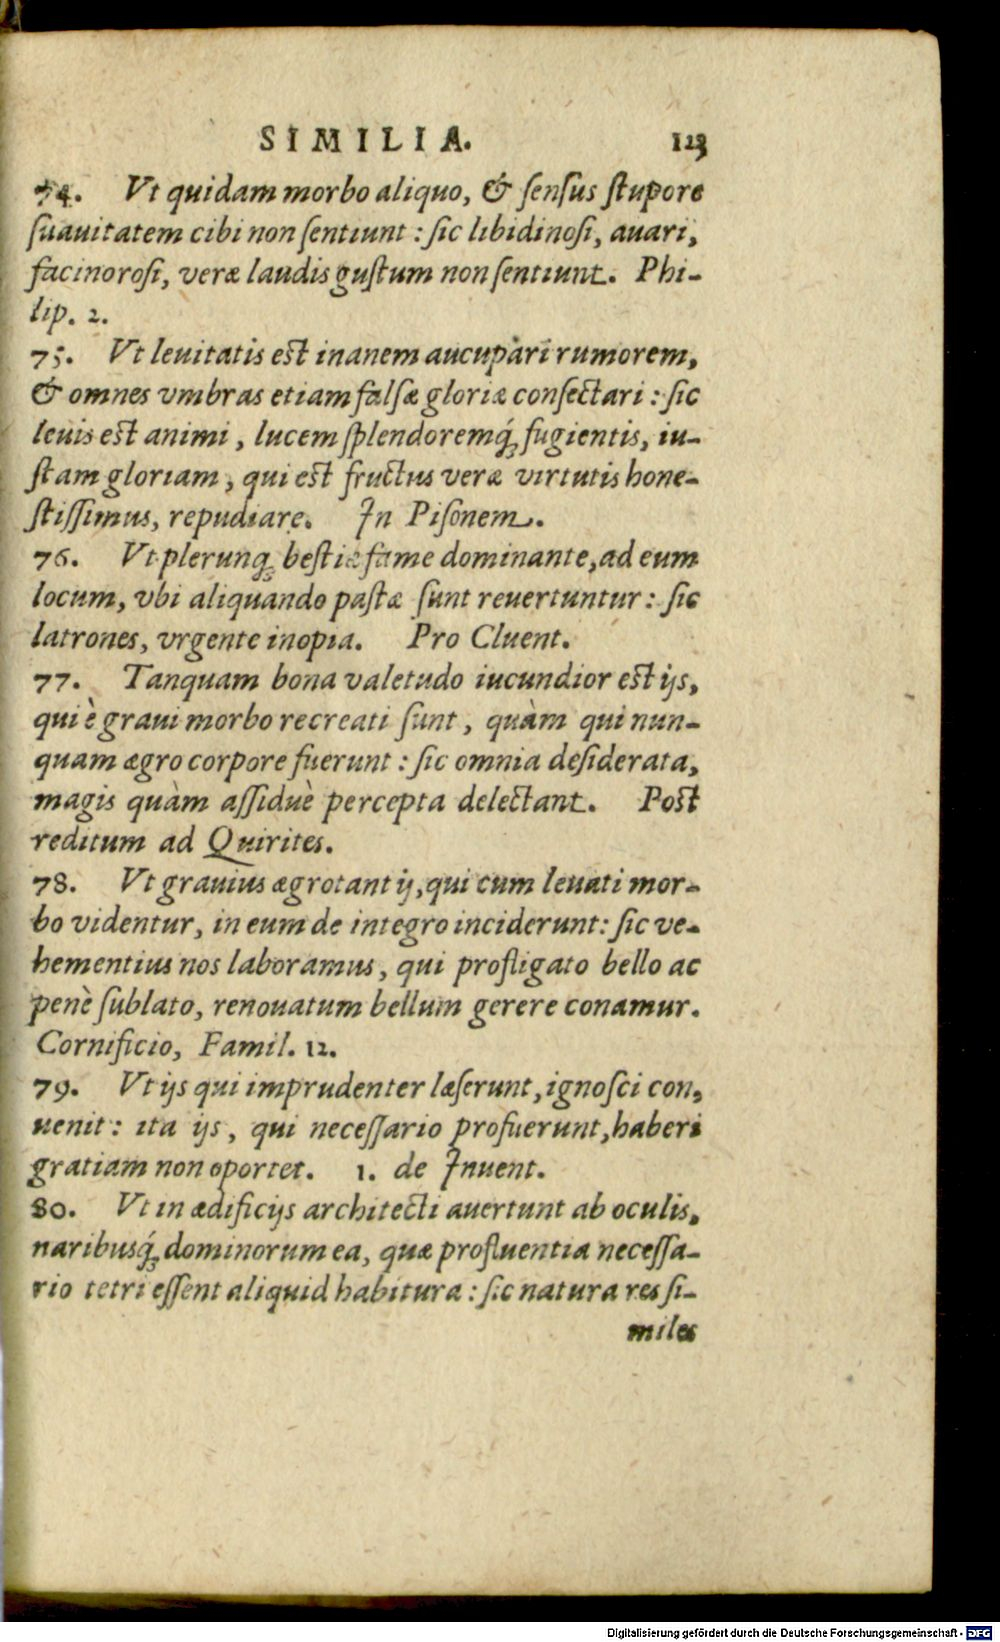 SIMILIA. 123
74. Vt quidam morbo aliquo, & ſenſus ſtupore
ſuauitatem cibi non ſentiunt : ſic libidinoſi, auari,
facinoroſi, veræ laudis guſtum non ſentiunt. Phi-
lip. 2.
75. Vt leuitatis est inanem aucupari rumorem,
& omnes vmbras etiam falſæ gloriæ conſectari : ſic
leuis est animi, lucem ſplendoremq́; fugientis, iu-
ſtam gloriam, qui est fructus veræ virtutis hone-
ſtiſſimus, repudiare. In Piſonem.
76. Vt plerunq; beſtiæ fame dominante, ad eum
locum, vbi aliquando paſtæ ſunt reuertuntur : ſic
latrones, vrgente inopia. Pro Cluent.
77. Tanquam bona valetudo iucundior est ijs,
qui è graui morbo recreati ſunt, quàm qui nun-
quam ægro corpore fuerunt : ſic omnia deſiderata,
magis quàm aſſiduè percepta delectant. Post
reditum ad Quirites.
78. Vt grauius ægrotant ij, qui cum leuati mor-
bo videntur, in eum de integro inciderunt: ſic ve-
hementius nos laboramus, qui profligato bello ac
penè ſublato, renouatum bellum gerere conamur.
Cornificio, Famil. 12.
79. Vt ijs qui imprudenter læſerunt, ignoſci con-
uenit : ita ijs, qui neceſſario profuerunt, haberi
gratiam non oportet. 1. de Inuent.
80. Vt in ædificijs architecti auertunt ab oculis,
naribusq́; dominorum ea, quæ profluentia neceſſa-
rio tetri eſſent aliquid habitura : ſic natura res ſi-
miles
Digitalisierung gefördert durch die Deutsche Forschungsgemeinschaft - DFG